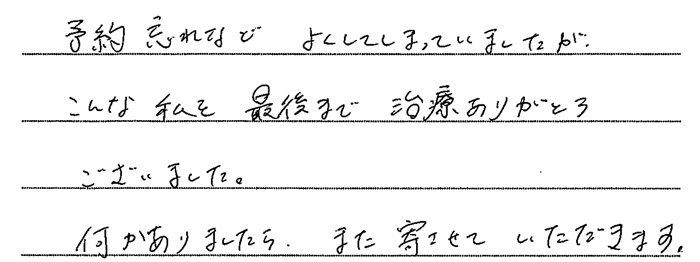 予約忘れなど よくしてしまっていましたが、
こんな私を 最後まで 治療ありがとう
ございました。
何かありましたら、また寄させていただきます。